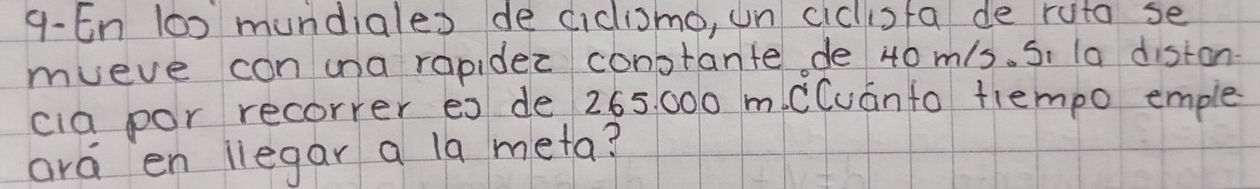 9-En los mundiales de ciclismo, un ciclista de ruta se
mueve con una rapidez constante de 40 m/s. Si la distan-
cia por recorrer es de 265.000 m. ¿Cuánto tiempo emple-
ará en llegar a la meta?